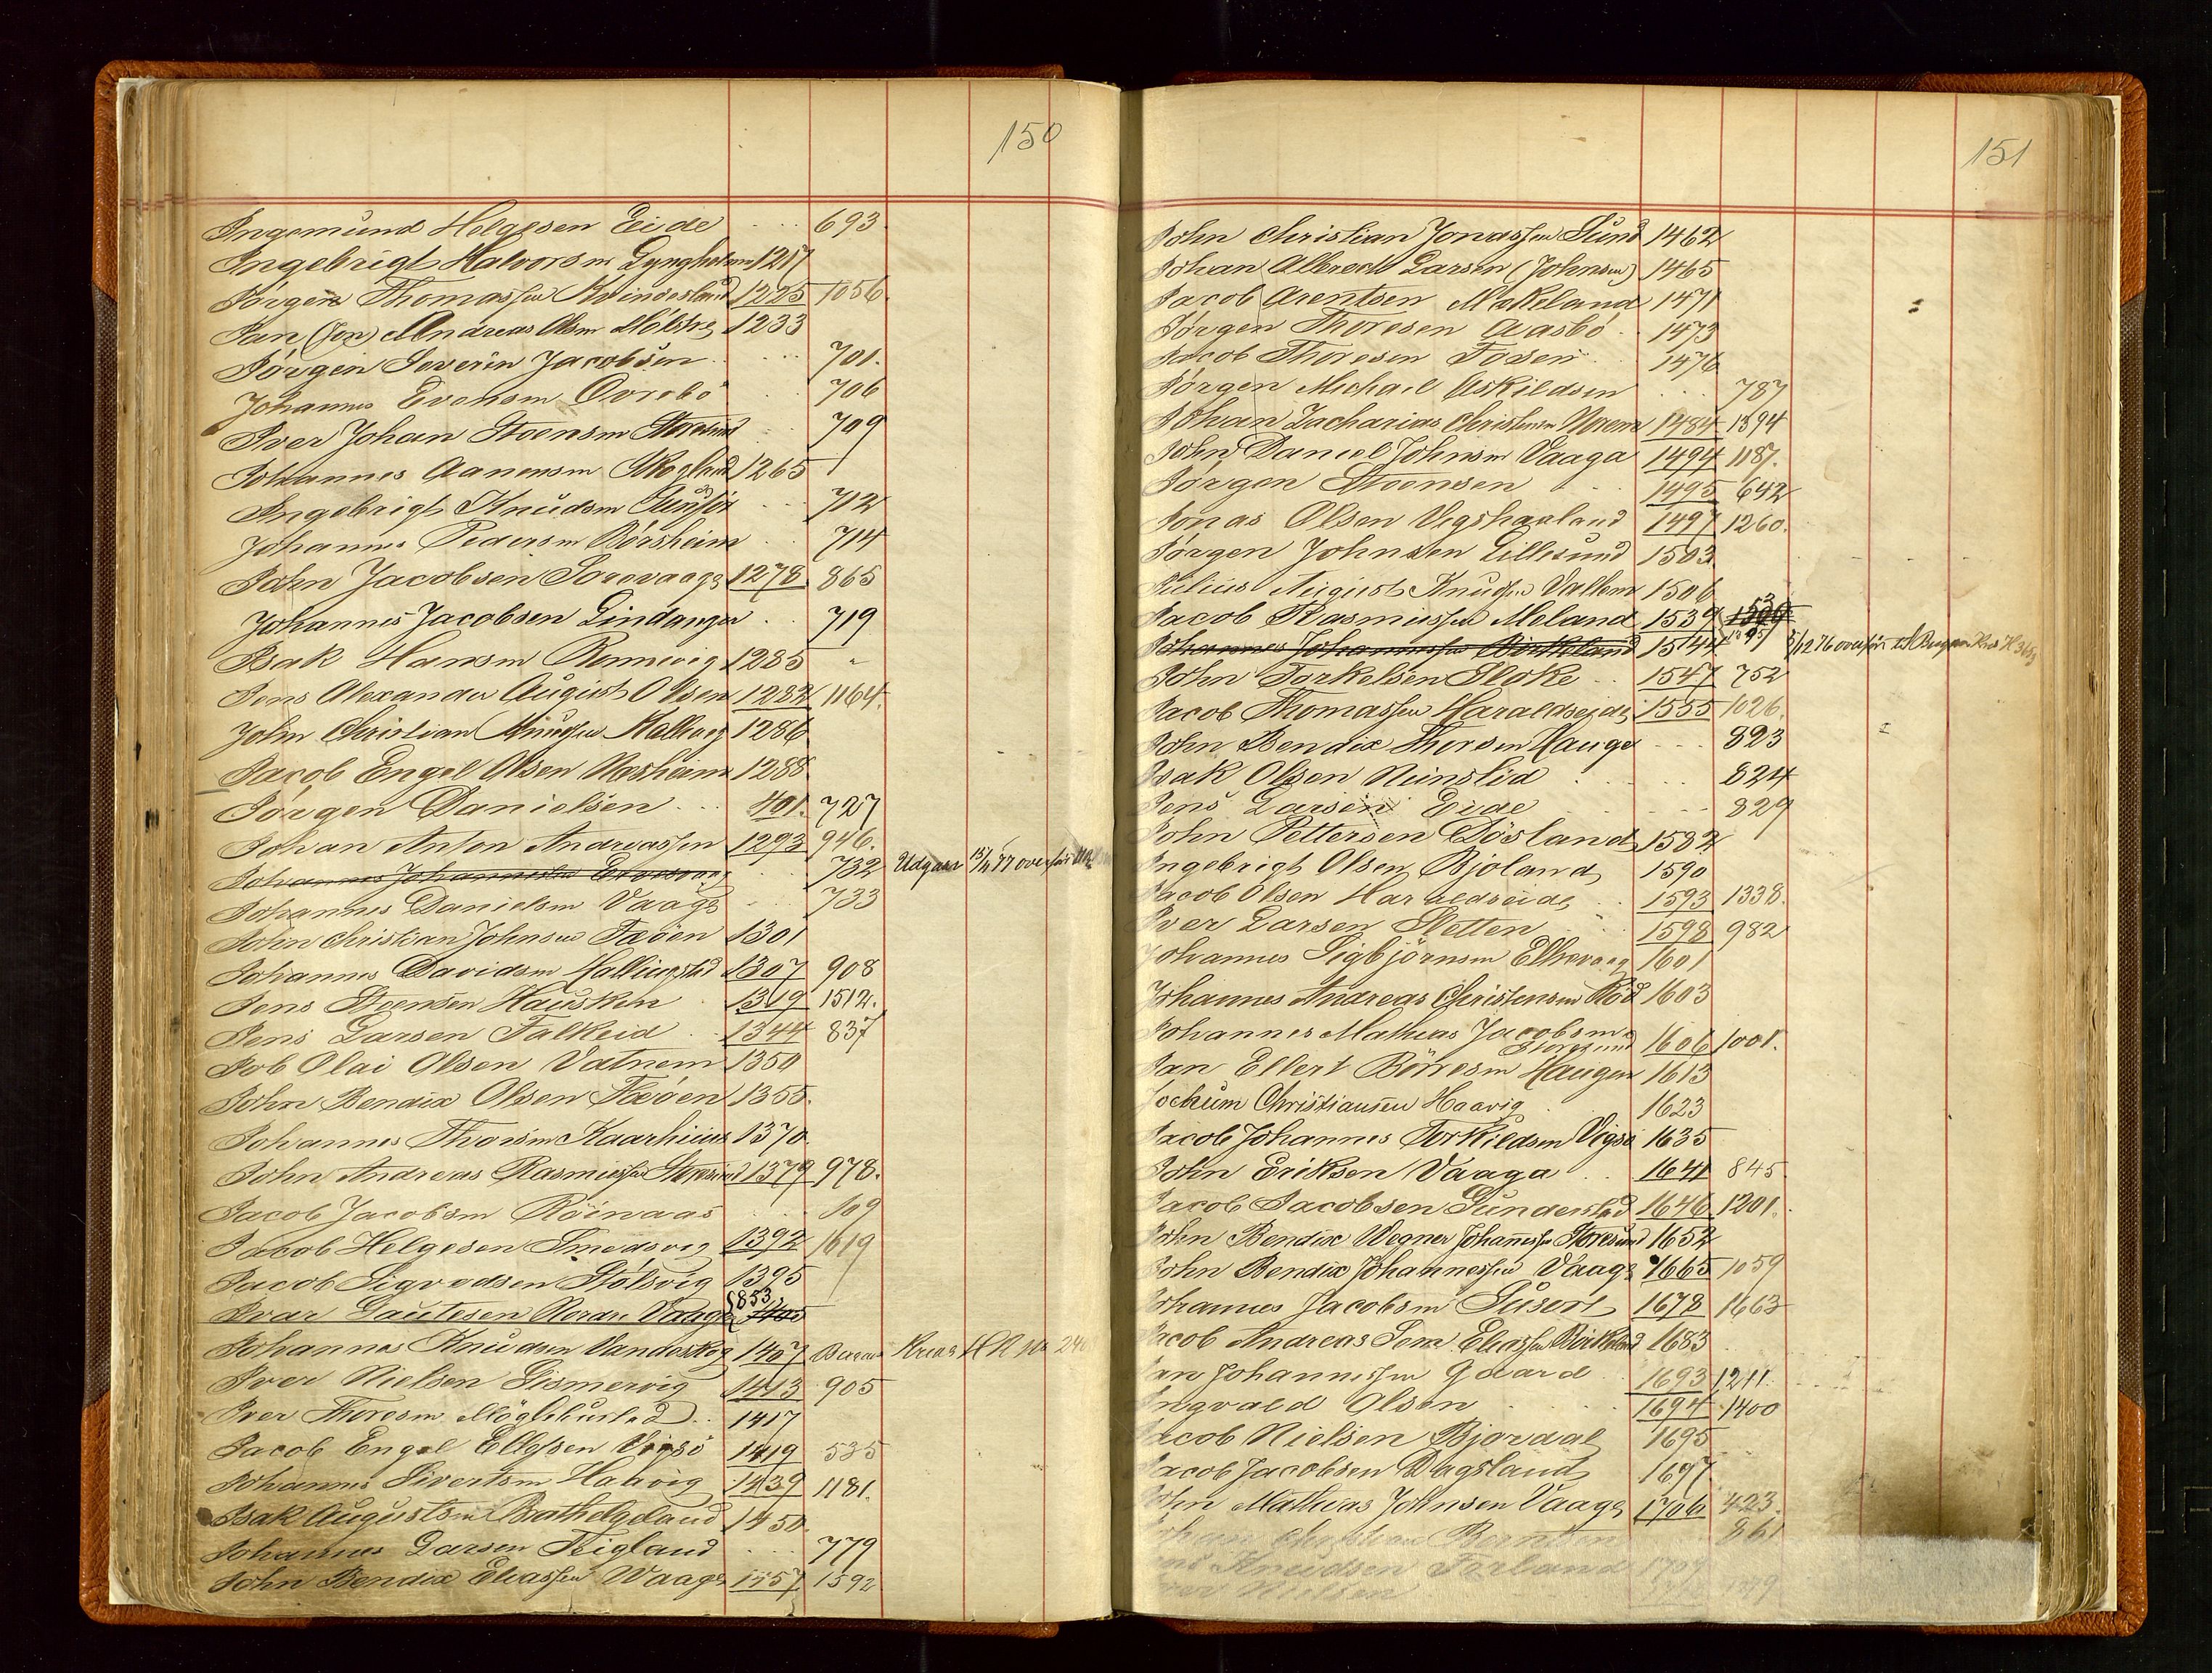 150
Ingemund Helgesen Eide 693.
Ingebrigt Halvorsen Lyngholmen 1217
Jørgen Thomassen Kvindesland 1225 1056.
Jan (Jon) Andreas Olsen 1233
Jørgen Severin Jacobsen 701.
Johannes Evensen Øvrebø 706
Iver Johan Steensen Storesund 709
Johannes Aanensen Skogland 1265
Ingebrigt Knudsen 712
Johannes Pedersen Børsheim 714
John Jacobsen Sørevaage 1278. 865
Johannes Jacobsen Lindanger 719
Isak Hansen Rennevig 1285 "
Jens Alexander August Olsen 1282 1164.
John Christian Knudsen Kalhag 1286
Jacob Engel Olsen Nesheim 1288
Jørgen Danielsen 401. 727
Johan Anton Andreassen 1293 946.
Johannes Johannessen 732 Udgaar 15/11 77 overført
Johannes Danielsen Vaage 733
John Christian Johnsen Fæøen 1301
Johannes Davidsen Hallingstad 1307 908
Jens Steensen Hausken 1319 1512.
Jens Larsen Falkeid 1344 837
Job Olai Olsen Vatnem 1350
John Bendix Olsen Fæøen 1355.
Johannes Thorsen Kaarhuus 1370
John Andreas Rasmussen Storesund 1379 978.
Jacob Jacobsen Röinaas 109
Jacob Helgesen Smedsvig 1392 1619
Jacob Sigvodsen Stølsvig 1395
Ivar Lautesen Nordre Vaage 853 1405
Johannes Knudsen Vandaskog 1407 Bergens Kreds H R No 240
Iver Nielsen Lismervig 1413 905
Iver Thoresen Møglebustad 1417
Jacob Engel Ellefsen Vigsø 1419 535
Johannes Sivertsen Haavig 1439 1181.
Isak Augustsen Brathelgeland 1450
Johannes Larsen Feigland 779
John Bendix Eliassen Waage 1457 1592
151
John Christian Jonassen Sund 1462
Johan Albrecht Larsen (Johnsen) 1465
Jacob Arentsen Mokeland 1471
Jørgen Thoresen Aasbø 1473
Jacob Thoresen Fosen 1476
Jørgen Michael Askildsen 787
Johan Zacharias Christensen 1484 1394
John Daniel Johnsen Vaaga 1494 1187.
Jørgen Steensen 1495 642
Jonas Olsen Vegshaaland 1497 1260.
Jørgen Johnsen Lillesund 1503
Julius August Knudsen 1506
Jacob Rasmussen Meland 1539
Johannes Johannessen Birkeland 1544 5/12 76 overført til Bergens Kreds
John Torkelsen Stoke 1547 752
Jacob Thomassen Haraldseide 1555 1026.
John Bendix Thorsen Hauge 823
Isak Olsen Nemslid 824
Jens Larsen Eide 829
John Pettersen Døsland 1582
Ingebrigt Olsen Bjoland 1590
Jacob Olsen Haraldseide 1593 1338.
Iver Larsen Sletten 1598 982
Johannes Sigbjørnsen Elhevaag 1601
Johannes Andreas Christensen Rød 1603
Johannes Mathias Jacobsen
Storesund 1606 1001.
Jan Ellert Börresen Haugen 1613
Jochum Christiansen Haavig 1623
Jacob Johannes Torkildsen Vigsø 1635
John Eriksen Vaaga 1641 845
Jacob Jacobsen Sunderstad 1646 1201.
John Bendix Wegner Johannessen Storesund 1652
John Bendix Johannessen Vaage 1665 1059
Johannes Jacobsen Susort 1678 1663
Jacob Andreas Sem Eliassen Birkeland 1683
Jan Johannessen Gaard 1693 1211.
Ingvald Olsen 1694 1400
Jacob Nielsen Bjordal 1695
Jacob Jacobsen Dagsland 1697
John Mathias Johnsen Vaage 1706 423.
Johan Christian Berntsen 861
Jens Knudsen Førland 1709
Iver Nielsen